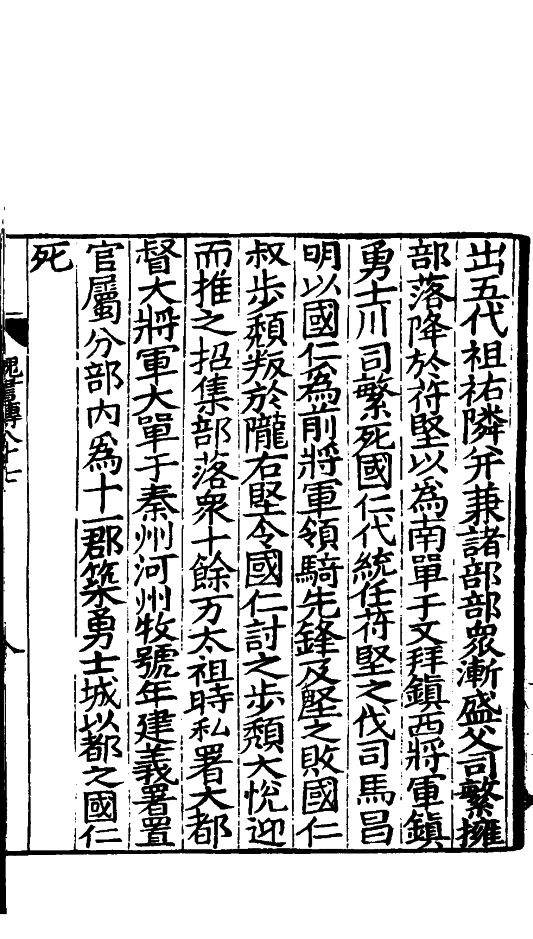 出五代祖祐隣并兼諸部部衆漸盛父司繁擁
部落降於苻堅以爲南單于文拜鎮西將軍鎮
勇士川司繁死國仁代統任苻堅之伐司馬昌
明以國仁爲前將軍領騎先鋒及堅之敗國仁
叔步頹叛於隴右堅令國仁討之步頹大恱迎
而推之招集部落衆十餘万太祖時私署大都
督大將軍大單于秦州河州牧號年建義署置
官屬分部内爲十一郡築勇士城以都之國仁
死
魏書傳八十七
八